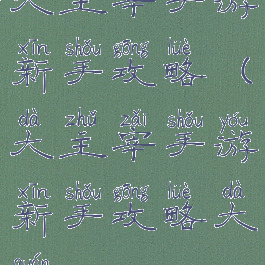 大主宰手游
xīn shǒu gōng lüè
新手攻略(
dà zhǔ zǎi shǒu yóu
大主宰手游
xīn shǒu gōng lüè dà
新手攻略大
quán